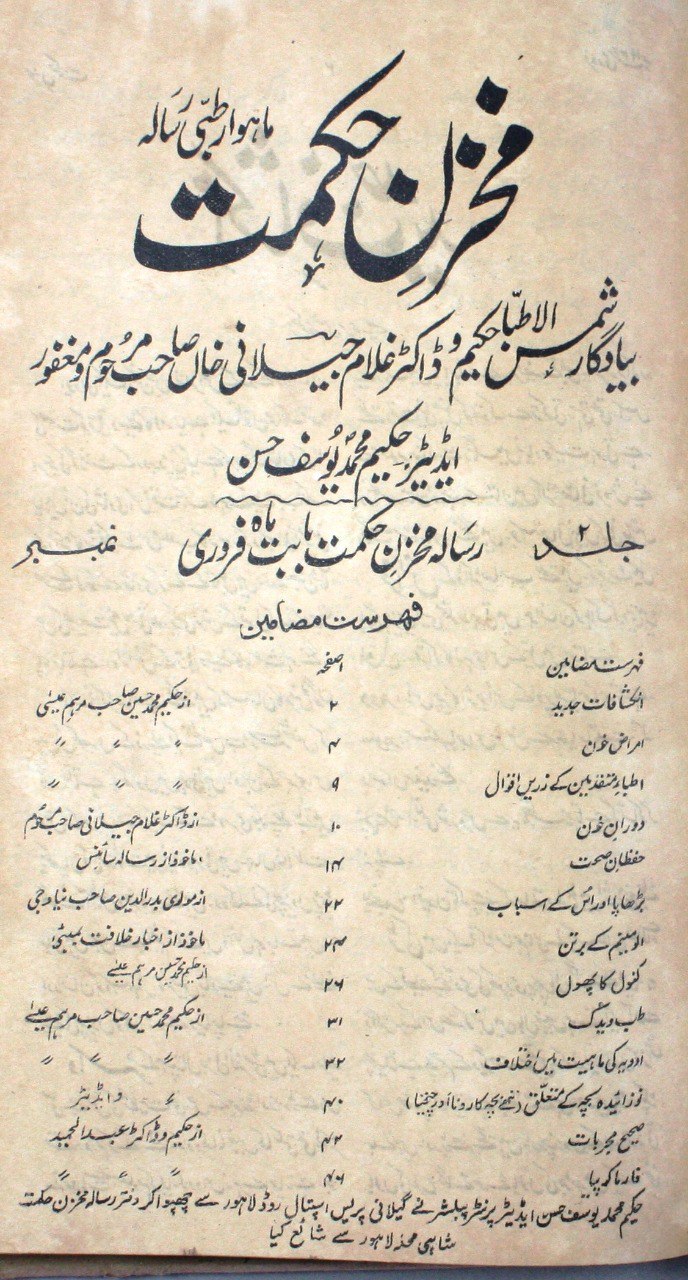 ماہوار طبّی رسالہ
مخزنِ حکمت
بیادگار شمس الاطبّا حکیم و ڈاکٹر غلام جیلانی خاں صاحب مرحوم و مغفور
ایڈیٹر: حکیم محمد یُوسف حسن
جلد ۲ رسالہ مخزنِ حکمت بابت ماہ فروری نمبر
فہرست مضامین
فہرست مضامین ا صفحہ
انکشافات جدید ۲ از حکیم محمد حسین صاحب مرہم عیسٰی
امراض خون ۴ 〃 〃 〃
اطباءِ متقدمین کے زریں اقوال ۹ 〃 〃 〃
دوران خون ۱۰ از ڈاکٹر غلام جیلانی صاحب مرحوم
حفظان صحت ۱۴ ماخوذ از رسالہ سائنس
بڑھاپا اور اس کے اسباب ۲۲ از مولوی بدرالدین صاحب
الومینیم کے برتن ۲۴ ماخوذ از اخبار خلافت بمبئی
کنول کا پھول ۲۶ از حکیم محمد حسین مرہم عیسٰے
طب ویدک ۳۱ از حکیم محمد حسین صاحب مرہم عیسٰے
ادویہ کی ماہیت میں اختلاف ۳۲ 〃 〃 〃
نوزائیدہ بچہ کے متعلّق (ننھے بچہ کا رونا اور چیخنا) ۴۰ 〃 و ایڈیٹر
صحیح مجربات ۴۲ از حکیم و ڈاکٹر عبدالمجید
فارماکوپیا ۴۶ 〃 〃 〃
حکیم محمد یوسف حسن ایڈیٹر پرنٹر پبلشر نے گیلانی پریس اسپتال روڈ لاہور سے چھپوا کر دفتر رسالہ مخزن حکمت
شاہی محلہ لاہور سے شائع کیا